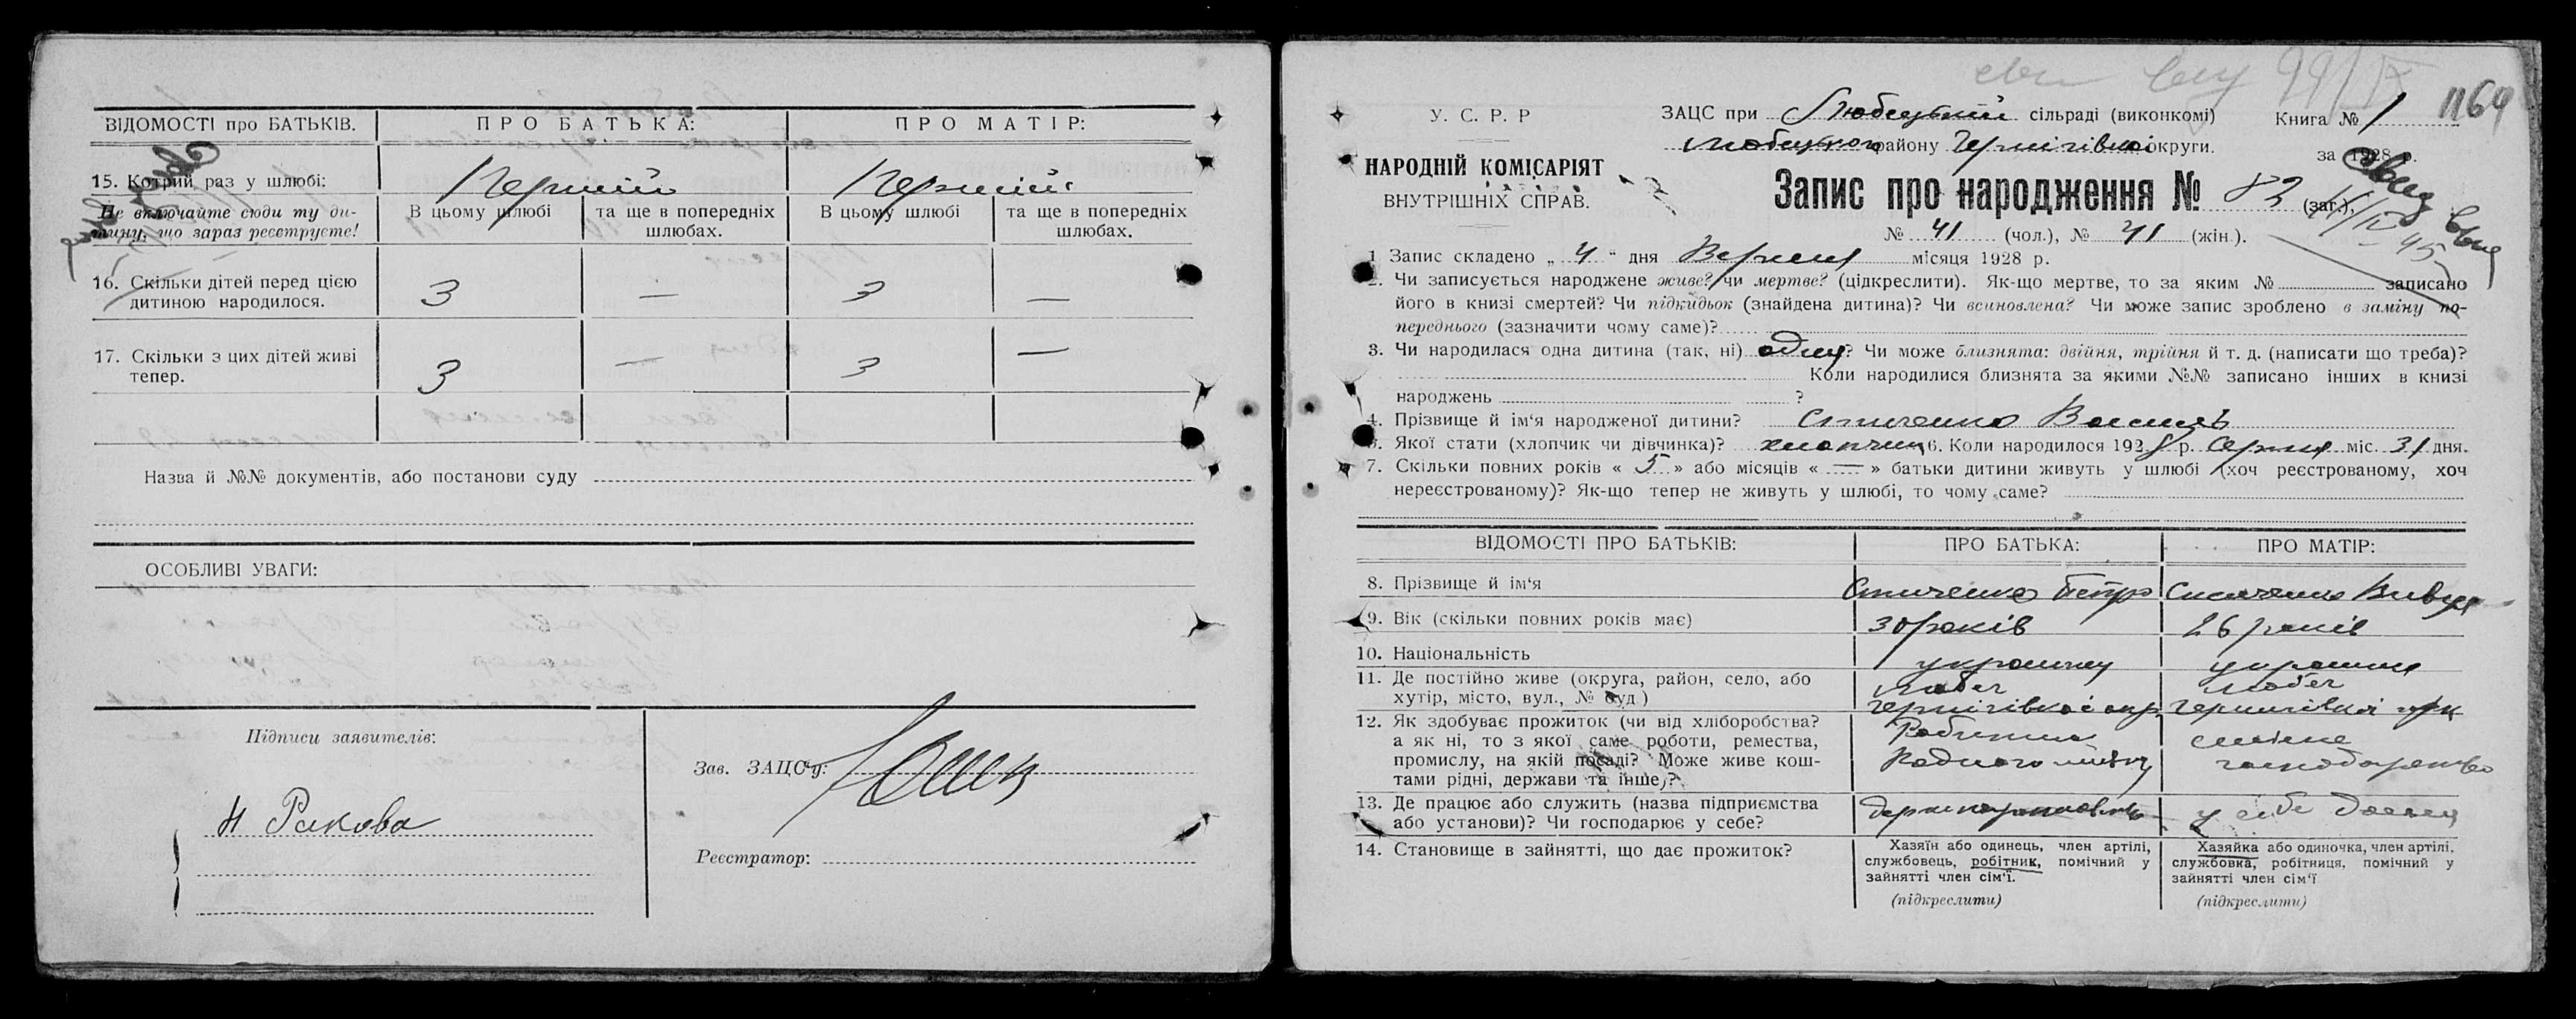 ВІДОМОСТІ про БАТЬКІВ. ПРО БАТЬКА: ПРО МАТІР:
15. Котрий раз у шлюбі: Перший Перший
Не включайте сюди ту ди-
тину, що зараз реєструєте!
В цьому шлюбі та ще в попередніх шлюбах. В цьому шлюбі та ще в попередніх шлюбах.
16. Скільки дітей перед цією
дитиною народилося. 3 — 3 —
17. Скільки з цих дітей живі
тепер. 3 — 3 —
Назва й №№ документів, або постанови суду
ОСОБЛИВІ УВАГИ:
Підписи заявителів:
Н Ракова
Зав. ЗАЦС'у:
Реєстратор:
1164
У. С. Р. Р
НАРОДНІЙ КОМІСАРІЯТ
ВНУТРІШНІХ СПРАВ.
ЗАЦС при Любецькій сільраді (виконкомі)
Любецького району Чернігівкої округи.
Книга № 1
за 1928 р.
Запис про народження № 82 (заг.),
№ 41 (чол.), № 41 (жін.).
1 Запис складено „ 4 “ дня Вересня місяця 1928 р.
2. Чи записується народжене живе? чи мертве? (цідкреслити). Як-що мертве, то за яким № записано
його в книзі смертей? Чи підкидьок (знайдена дитина)? Чи всиновлена? Чи може запис зроблено в заміну по-
переднього (зазначити чому саме)?
3. Чи народилася одна дитина (так, ні) одну? Чи може близнята: двійня, трійня й т. д. (написати що треба)?
Коли народилися близнята за якими №№ записано інших в книзі
народжень ?
4. Прізвище й ім'я народженої дитини? Василь
5. Якої стати (хлопчик чи дівчинка)? хлопчик 6. Коли народилося 1928 р. Серпня міс. 31 дня.
7. Скільки повних років « 5 » або місяців « — » батьки дитини живуть у шлюбі (хоч реєстрованому, хоч
нереєстрованому)? Як-що тепер не живуть у шлюбі, то чому саме?
ВІДОМОСТІ ПРО БАТЬКІВ: ПРО БАТЬКА: ПРО МАТІР:
8. Прізвище й ім'я Петро
9. Вік (скільки повних років має) 30 років 26 років
10. Національність українец українка
11. Де постійно живе (округа, район, село, або
хутір, місто, вул., № буд.) Любеч Любеч
Чернігівкої окр. Чернигівкої окр
12. Як здобуває прожиток (чи від хліборобства?
а як ні, то з якої саме роботи, ремества,
промислу, на якій посаді? Може живе кош-
тами рідні, держави та інше)?
Робітник
сільське
господарство
13. Де працює або служить (назва підприємства
або установи)? Чи господарює у себе? у себе дома
14. Становище в зайнятті, що дає прожиток?
Хазяїн або одинець, член артілі,
службовець, робітник, помічний у
зайнятті член сім'ї.
(підкреслити)
Хазяйка або одиночка, член артілі,
службовка, робітниця, помічний у
зайнятті член сім'ї
(підкреслити)